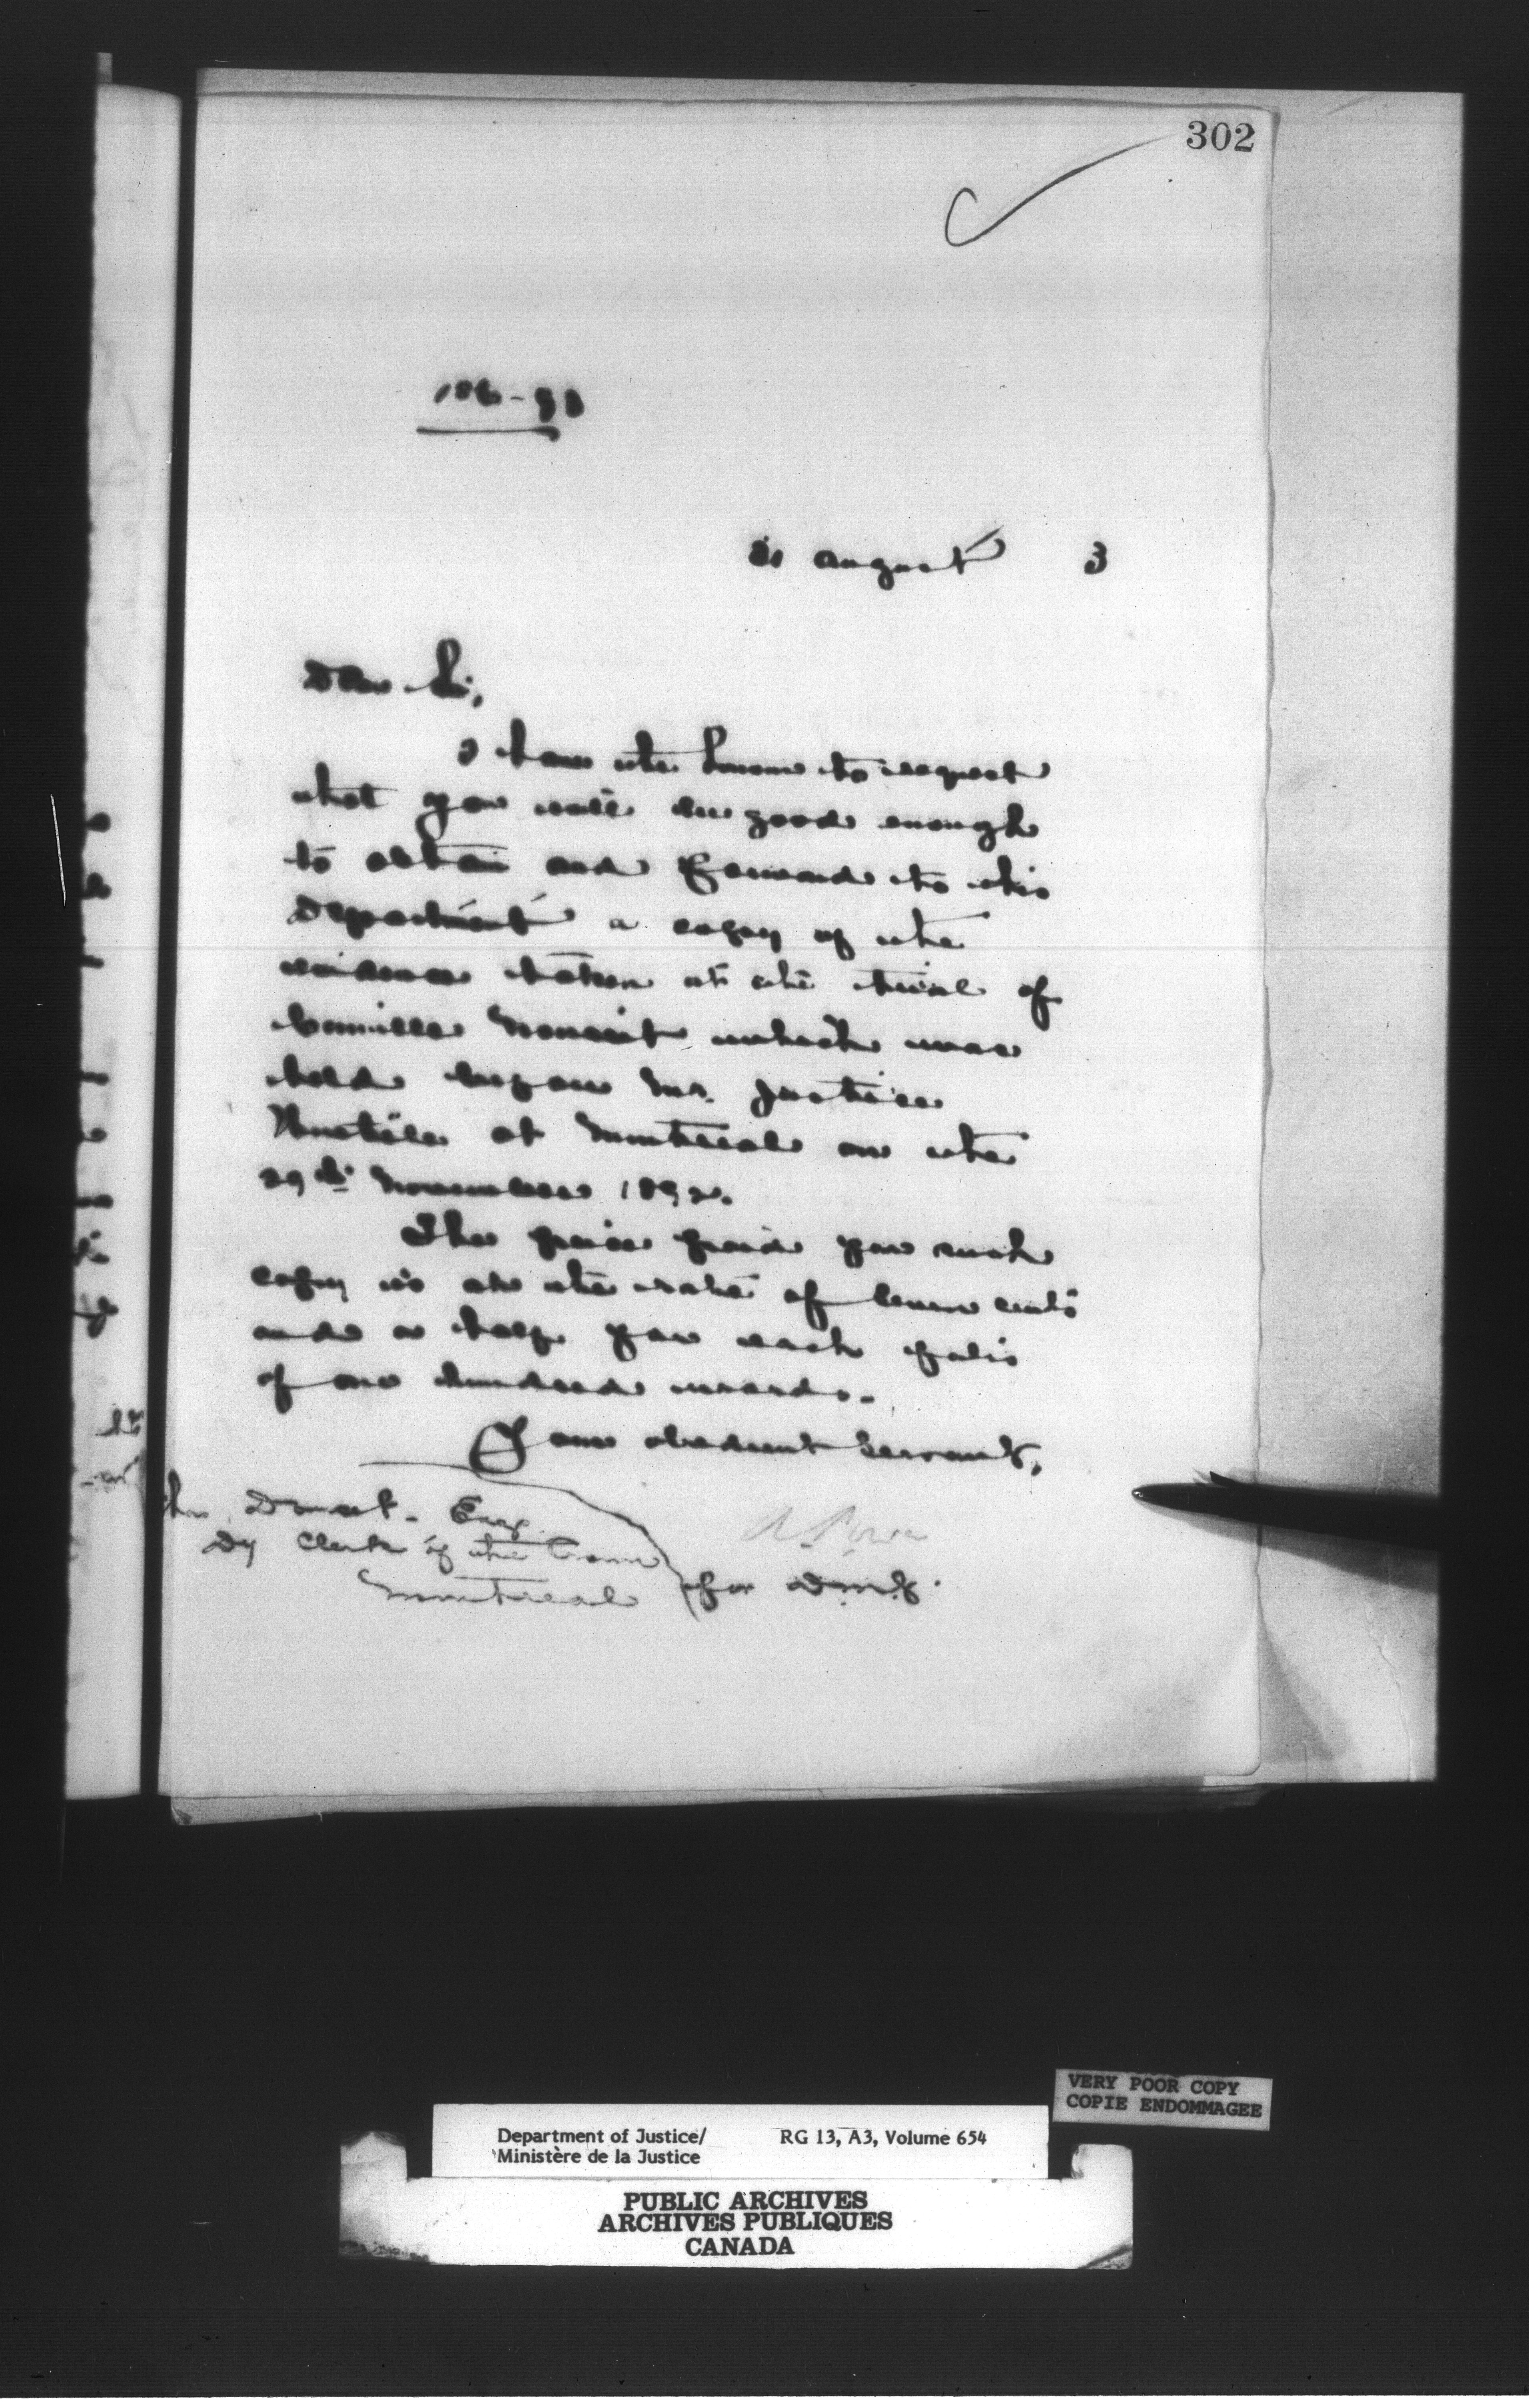 302
186-93
21 August 3
Dear Sir,
I have the honour to request
that you will be good enough
to obtain and forward to this
Department a copy of the
evidence taken at the trial of
Camille which was
held before Mr. Justice
Wurtele at Montreal on the
29th November 1892.
The price paid for such
copy is at the rate of seven cents
and a half for each folio
of one hundred words.
Your obedient Servant,
A. Power
for D.M.J.
Esq
Dy Clerk of the Crown
Montreal
VERY POOR COPY
COPIE ENDOMMAGEE
Department of Justice/ RG 13, A3, Volume 654
Ministère de la Justice
PUBLIC ARCHIVES
ARCHIVES PUBLIQUES
CANADA